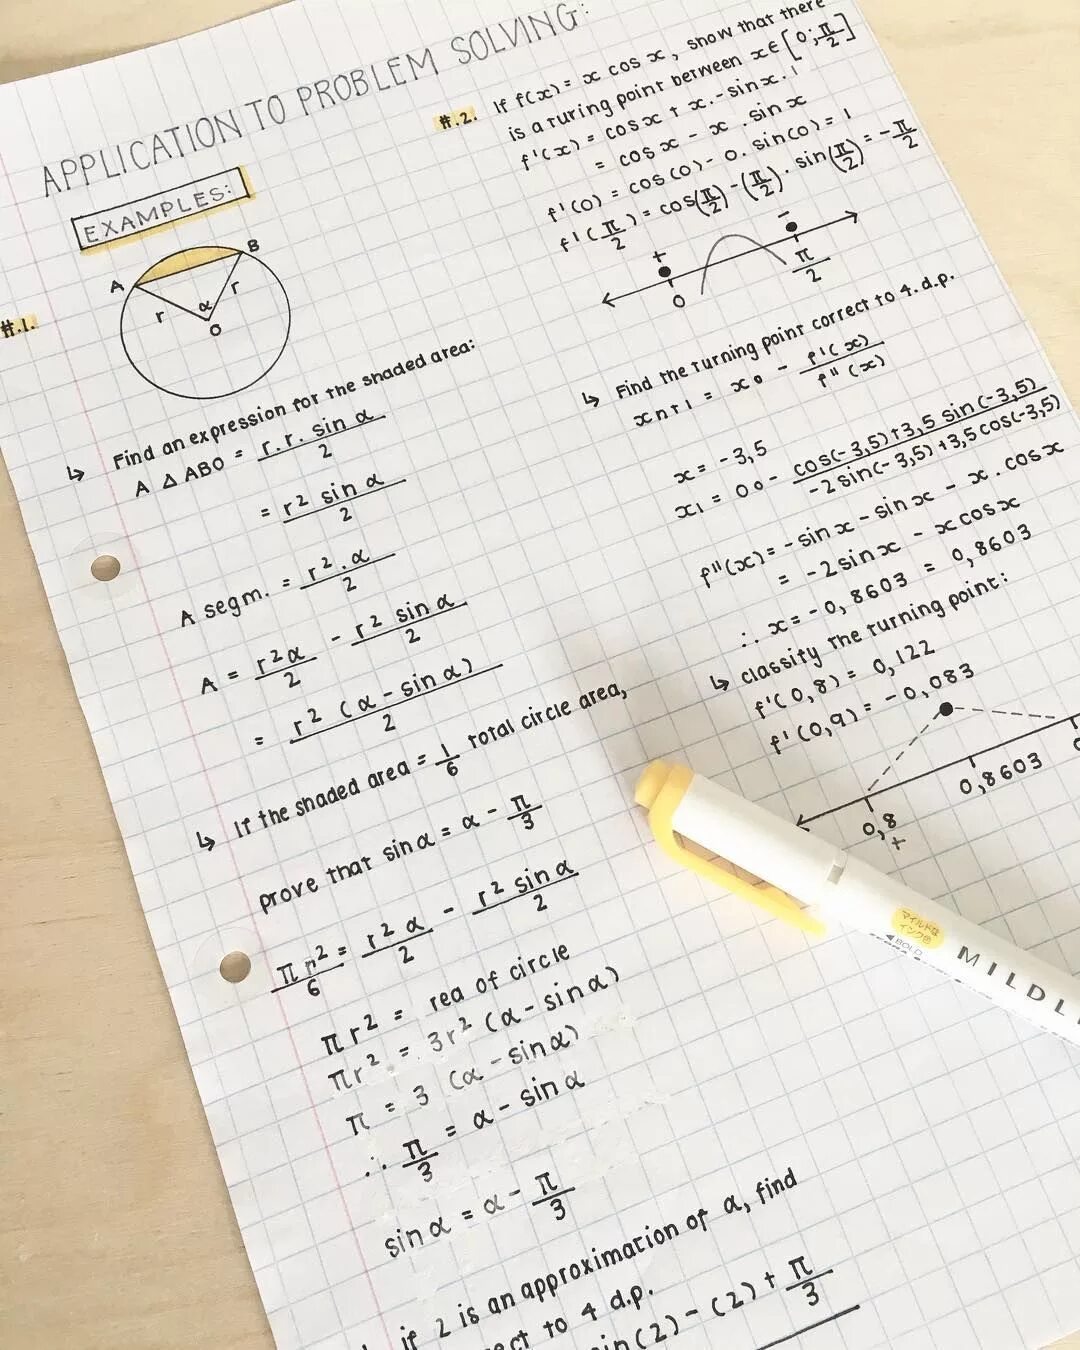 APPLICATION TO PROBLEM SOLVING:
EXAMPLES:
#.1.
A
B
r
α
r
O
↳ Find an expression for the shaded area:
A △ ABO = r.r. sin α / 2
= r² sin α / 2
A segm. = r² . α / 2
A = r²α / 2 - r² sin α / 2
= r² (α - sin α) / 2
↳ If the shaded area = 1/6 total circle area,
prove that sin α = α - π/3
πr²/6 = r² α / 2 - r² sin α / 2
πr² = rea of circle
πr² = 3r² (α - sin α)
π = 3 (α - sin α)
∴ π/3 = α - sin α
sin α = α - π/3
if 2 is an approximation of α, find
ect to 4 d.p.
in(2) - (2) + π/3
#.2. If f(x) = x cos x, show that there
is a turing point between x ∈ [0; π/2]
f'(x) = cos x + x. - sin x. 1
= cos x - x . sin x
f'(0) = cos(0) - 0. sin(0) = 1
f'(π/2) = cos(π/2) - (π/2) . sin(π/2) = - π/2
+
-
0
π/2
↳ Find the turning point correct to 4. d.p.
xn+1 = x0 - f'(x) / f''(x)
x = -3,5
x1 = 00 - cos(-3,5)+3,5 sin(-3,5) / -2sin(-3,5)+3,5cos(-3,5)
f''(x) = - sin x - sin x - x . cos x
= -2 sin x - x cos x
∴ x = -0,8603 = 0,8603
↳ classify the turning point:
f'(0,8) = 0,122
f'(0,9) = -0,083
0,8
+
0,8603
マイルドな
インク色
◀BOLD
MILDL